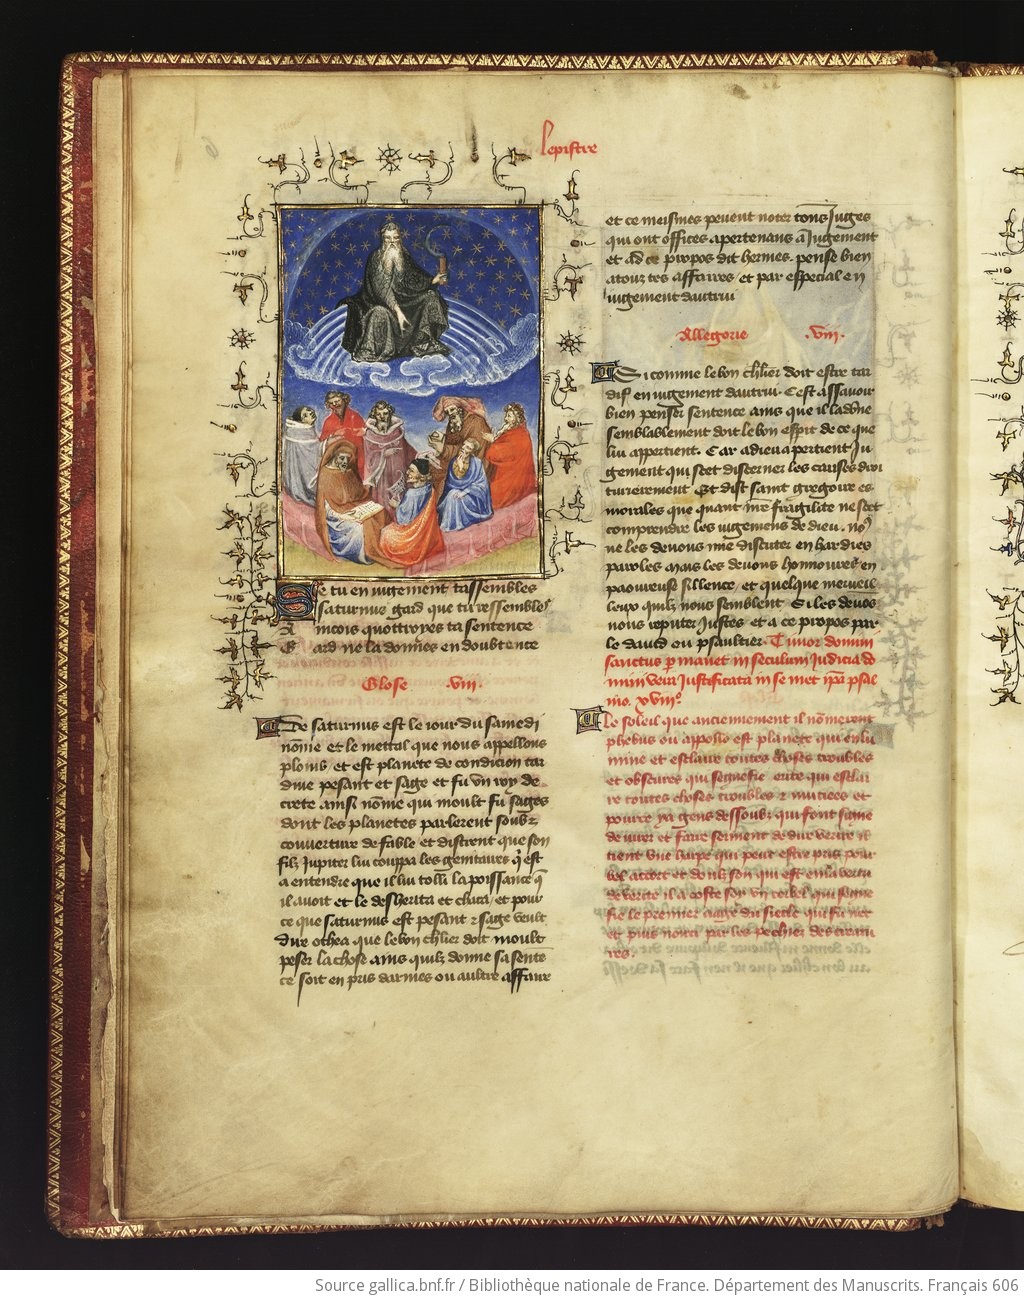 Lepistre
Se tu en iugement tassembles
Saturnus gard que tu ressembles
Aincois quottroyes ta sentence
Gard ne la donnes en doubtence
Glose .viii.
De saturnus est le iour du samedi
nōme et le mettal que nous appellons
plonis et est planete de condicion tar
diue pesant et sage et fu vn roy de
crete ainsi nōme qui moult fu sages
dont les planetes parlerent soubz
couuerture de fable et distrent que son
filz Jupiter lui couppa les genitaires q̄ est
a entendre que il lui tolli la poissance q̄
il auoit et le desherita et chaca et pour
ce que saturnus est pesant 2 sage veult
dire othea que le bon chlier doit moult
peser la chose ains quilz donne sa sentē
ce soit en pris darmes ou aultre affaire
et ce meismes peuent noter tous Juges
qui ont offices apertenans a Jugement
et ad ce propos dit hermes. pense bien
a touz tes affaires et par especial en
iugement dautrui
Allegorie .viii.
Si comme le bon chlier doit estre tar
dif en iugement dautrui. Cest assauoir
bien penser sentence ains que il la dōne
semblablement doit le bon esp̄it de ce que
lui appertient. Car a dieu apertient Ju
gement qui scet discerner les causes droi
turierement Et dist saint gregoire es
morales que quant nr̄e fragilite ne scet
comprendre les iugemens de dieu. no9
ne les deuons mie discuter en hardies
paroles mais les deuons honnourer en
paoureuse sillence et quelque merueil
leux quilz nous semblent Si les deuōs
nous reputer Justes et a ce propos par
le dauid ou psaultier. Timor domini
sanctus p̄manet in seculum Judicia do
mini vera Justificata in se met ip̄a psal
mo. xviii°.
Le soleil que anciennement il nōmeront
phebus ou appollo est planete qui enlu
mine et esclaire toutes choses troubles
et obscures qui segnefie verite qui esclai
re toutes choses troubles 2 mucees et
pourra ya gens dessoubz qui font signe
de iurer et faire serment de dire verite il
tient vne harpe qui peut estre pris pour
bel accort et doulz son qui est en la vertu
de verite il a coste soy vn corbel qui signe
fie le premier aage du siecle qui fu net
et puis noirci par les pechiez des creatu
res.
Source gallica.bnf.fr / Bibliothèque nationale de France. Département des Manuscrits. Français 606